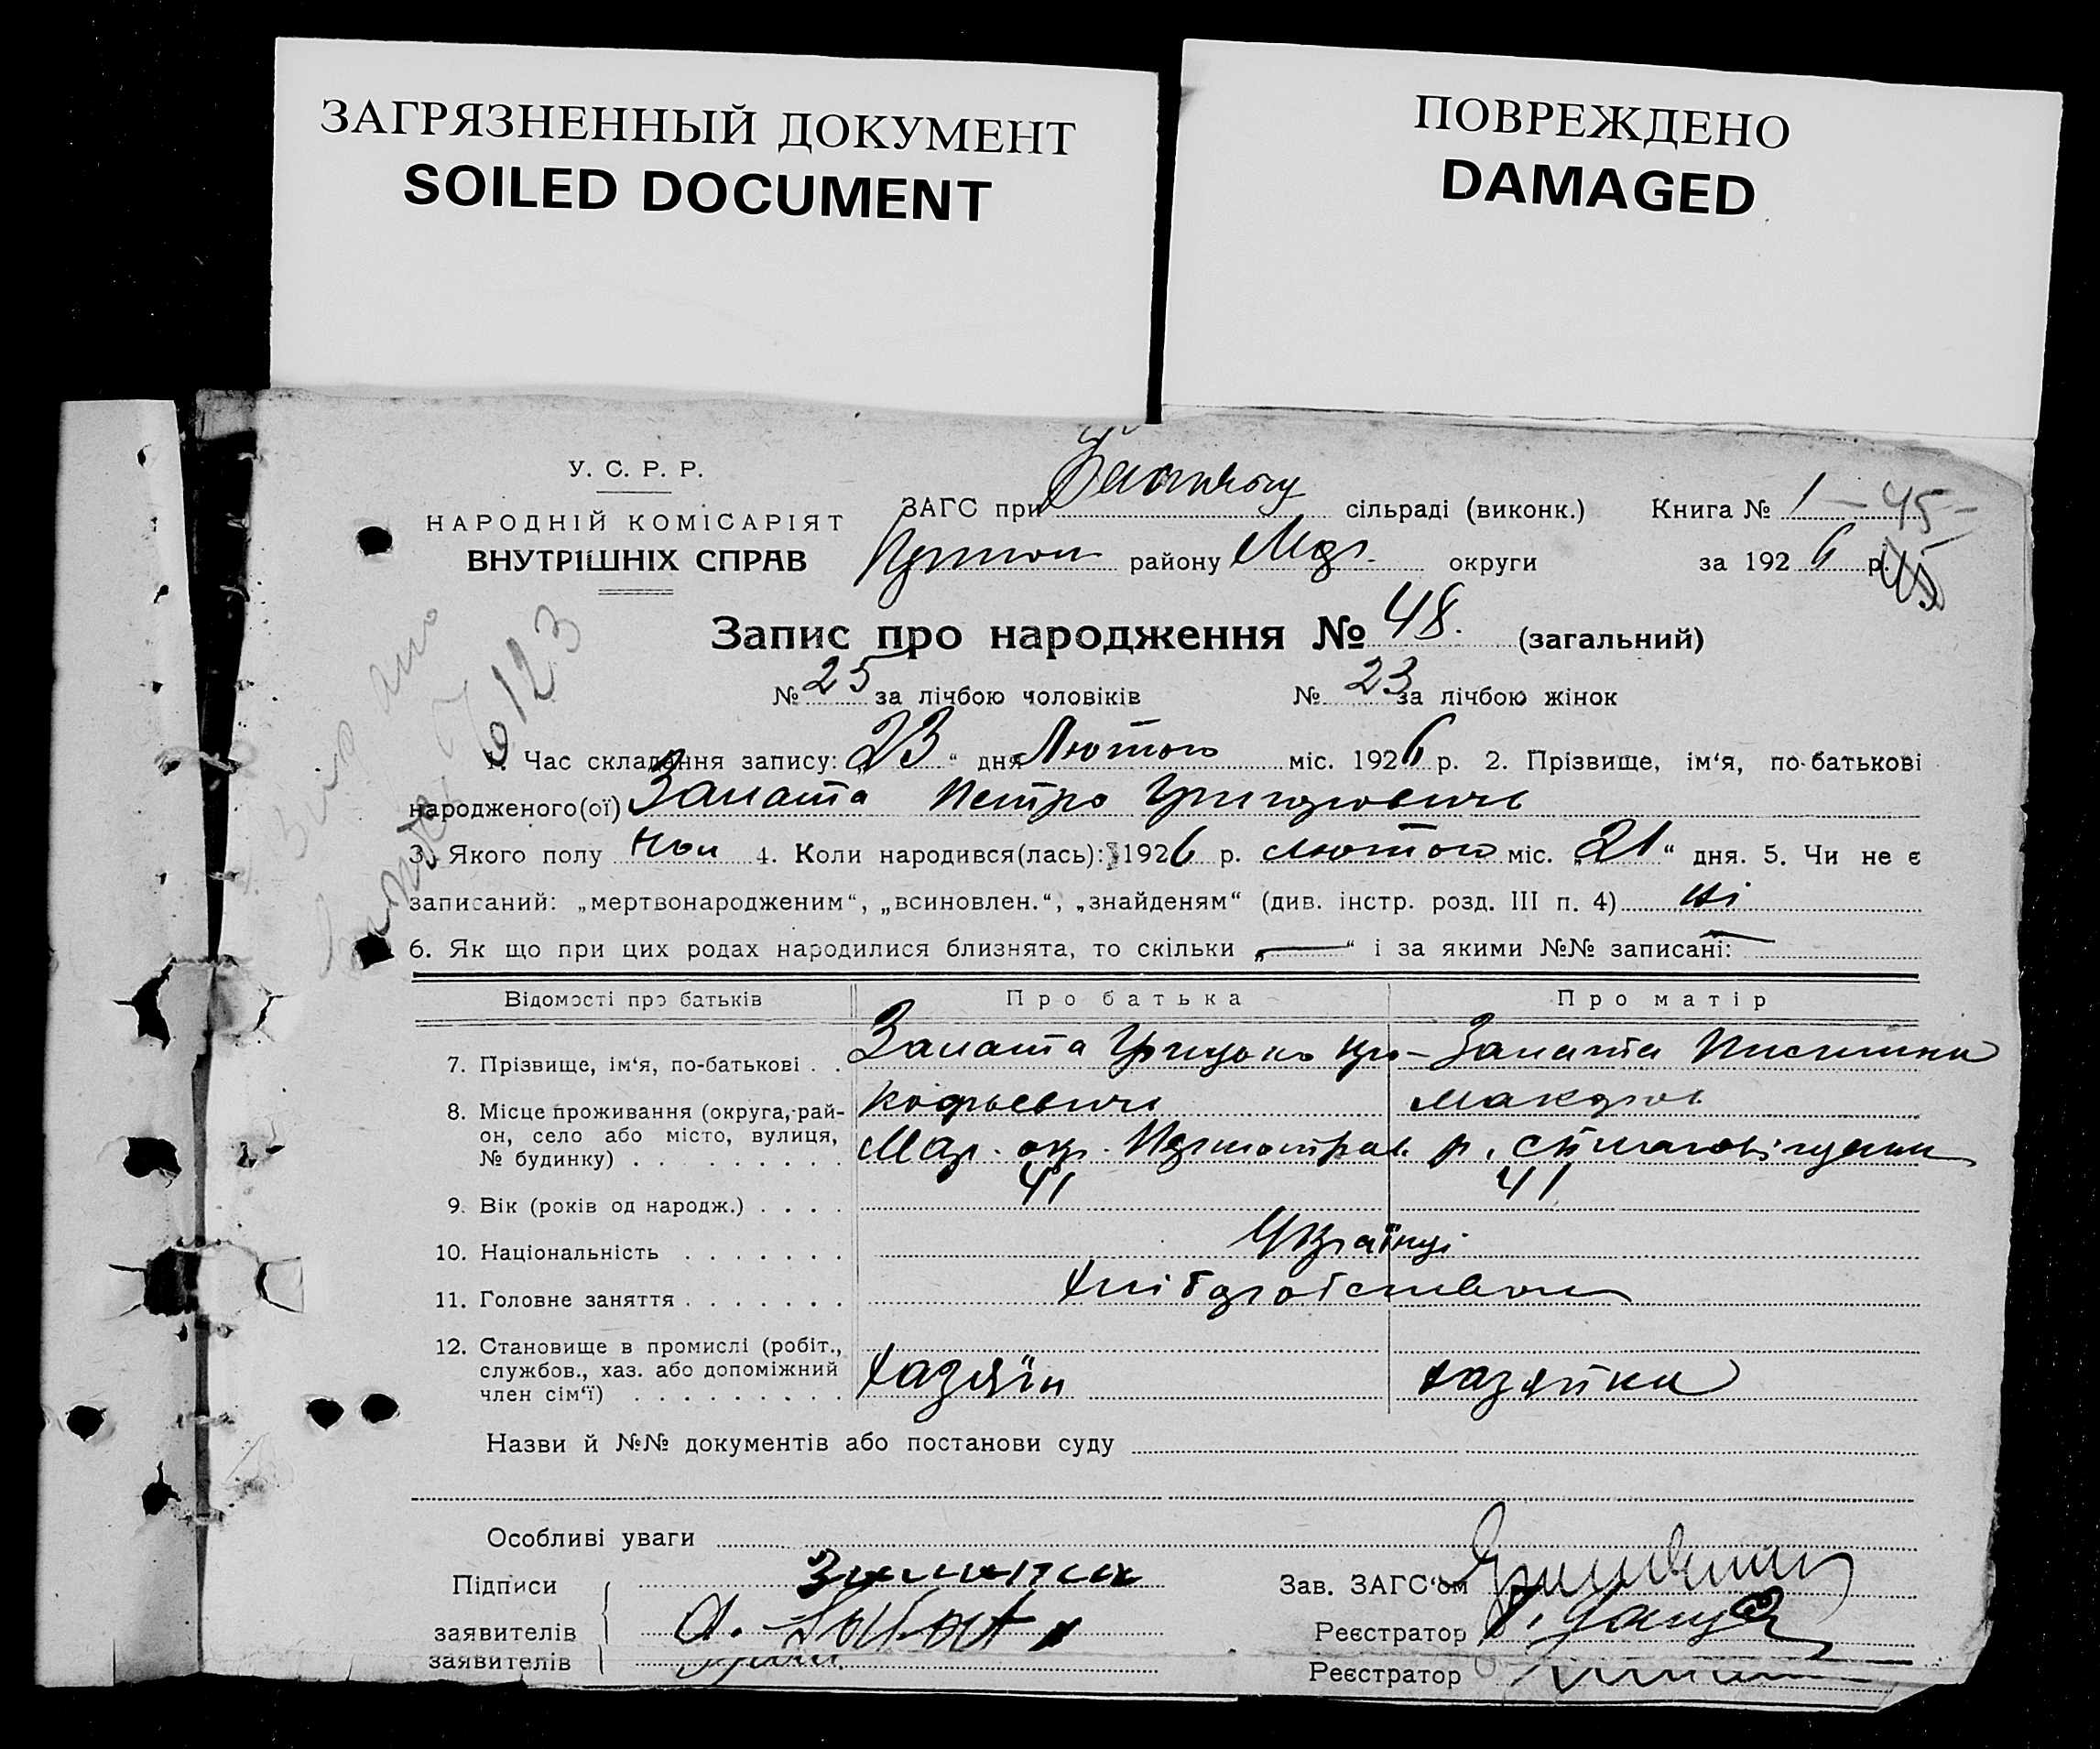 ЗАГРЯЗНЕННЫЙ ДОКУМЕНТ
SOILED DOCUMENT
ПОВРЕЖДЕНО
DAMAGED
У. С. Р. Р.
НАРОДНІЙ КОМІСАРІЯТ
ВНУТРІШНІХ СПРАВ
ЗАГС при сільраді (виконк.) Книга № 1 - 45 -
району Мар. округи за 1926 р.
Запис про народження № 48. (загальний)
№ 25 за лічбою чоловіків № 23 за лічбою жінок
6123
1. Час складення запису: „23“ дня Лютого міс. 1926 р. 2. Прізвище, ім‘я, по-батькові
народженого(ої) Залата Петро Григорович
3. Якого полу чол 4. Коли народився(лась): 1926 р. лютого міс. „21“ дня. 5. Чи не є
записаний: „мертвонародженим“, „всиновлен.“, „знайденям“ (див. інстр. розд. III п. 4) ні
6. Як що при цих родах народилися близнята, то скільки „—“ і за якими №№ записані: —
Відомості про батьків Про батька Про матір
7. Прізвище, ім‘я, по-батькові . . Залата Грицько Про- Залата
8. Місце проживання (округа, рай- кофьевич Макаров
он, село або місто, вулиця,
№ будинку) . . . . . . . . . Мар. окр. р.
9. Вік (років од народж.) . . . . 41 41
10. Національність . . . . . . . Українці
11. Головне заняття . . . . . . . хліборобством
12. Становище в промислі (робіт.,
службов., хаз. або допоміжний хазяїн хазяйка
член сім‘ї) . . . . . . . . .
Назви й №№ документів або постанови суду
Особливі уваги
Підписи Залата Зав. ЗАГС‘ом
заявителів Реєстратор
заявителів Реєстратор